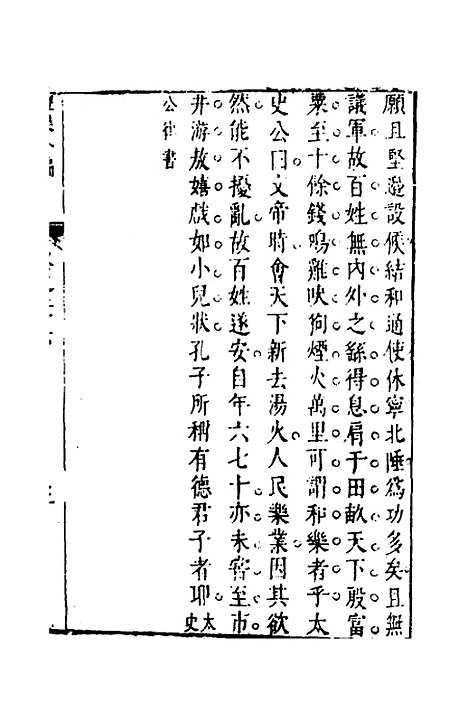 願且堅邊設候結和通使休寧北陲爲功多矣且無
議軍故百姓無內外之繇得息肩于田畝天下殷富
粟至十餘錢鳴雞吠狗煙火萬里可謂和樂者乎太
史公曰文帝時會天下新去湯火人民樂業因其欲
然能不擾亂故百姓遂安自年六七十亦未嘗至市
井游敖嬉戲如小兒狀孔子所稱有德君子者耶太史
公律書